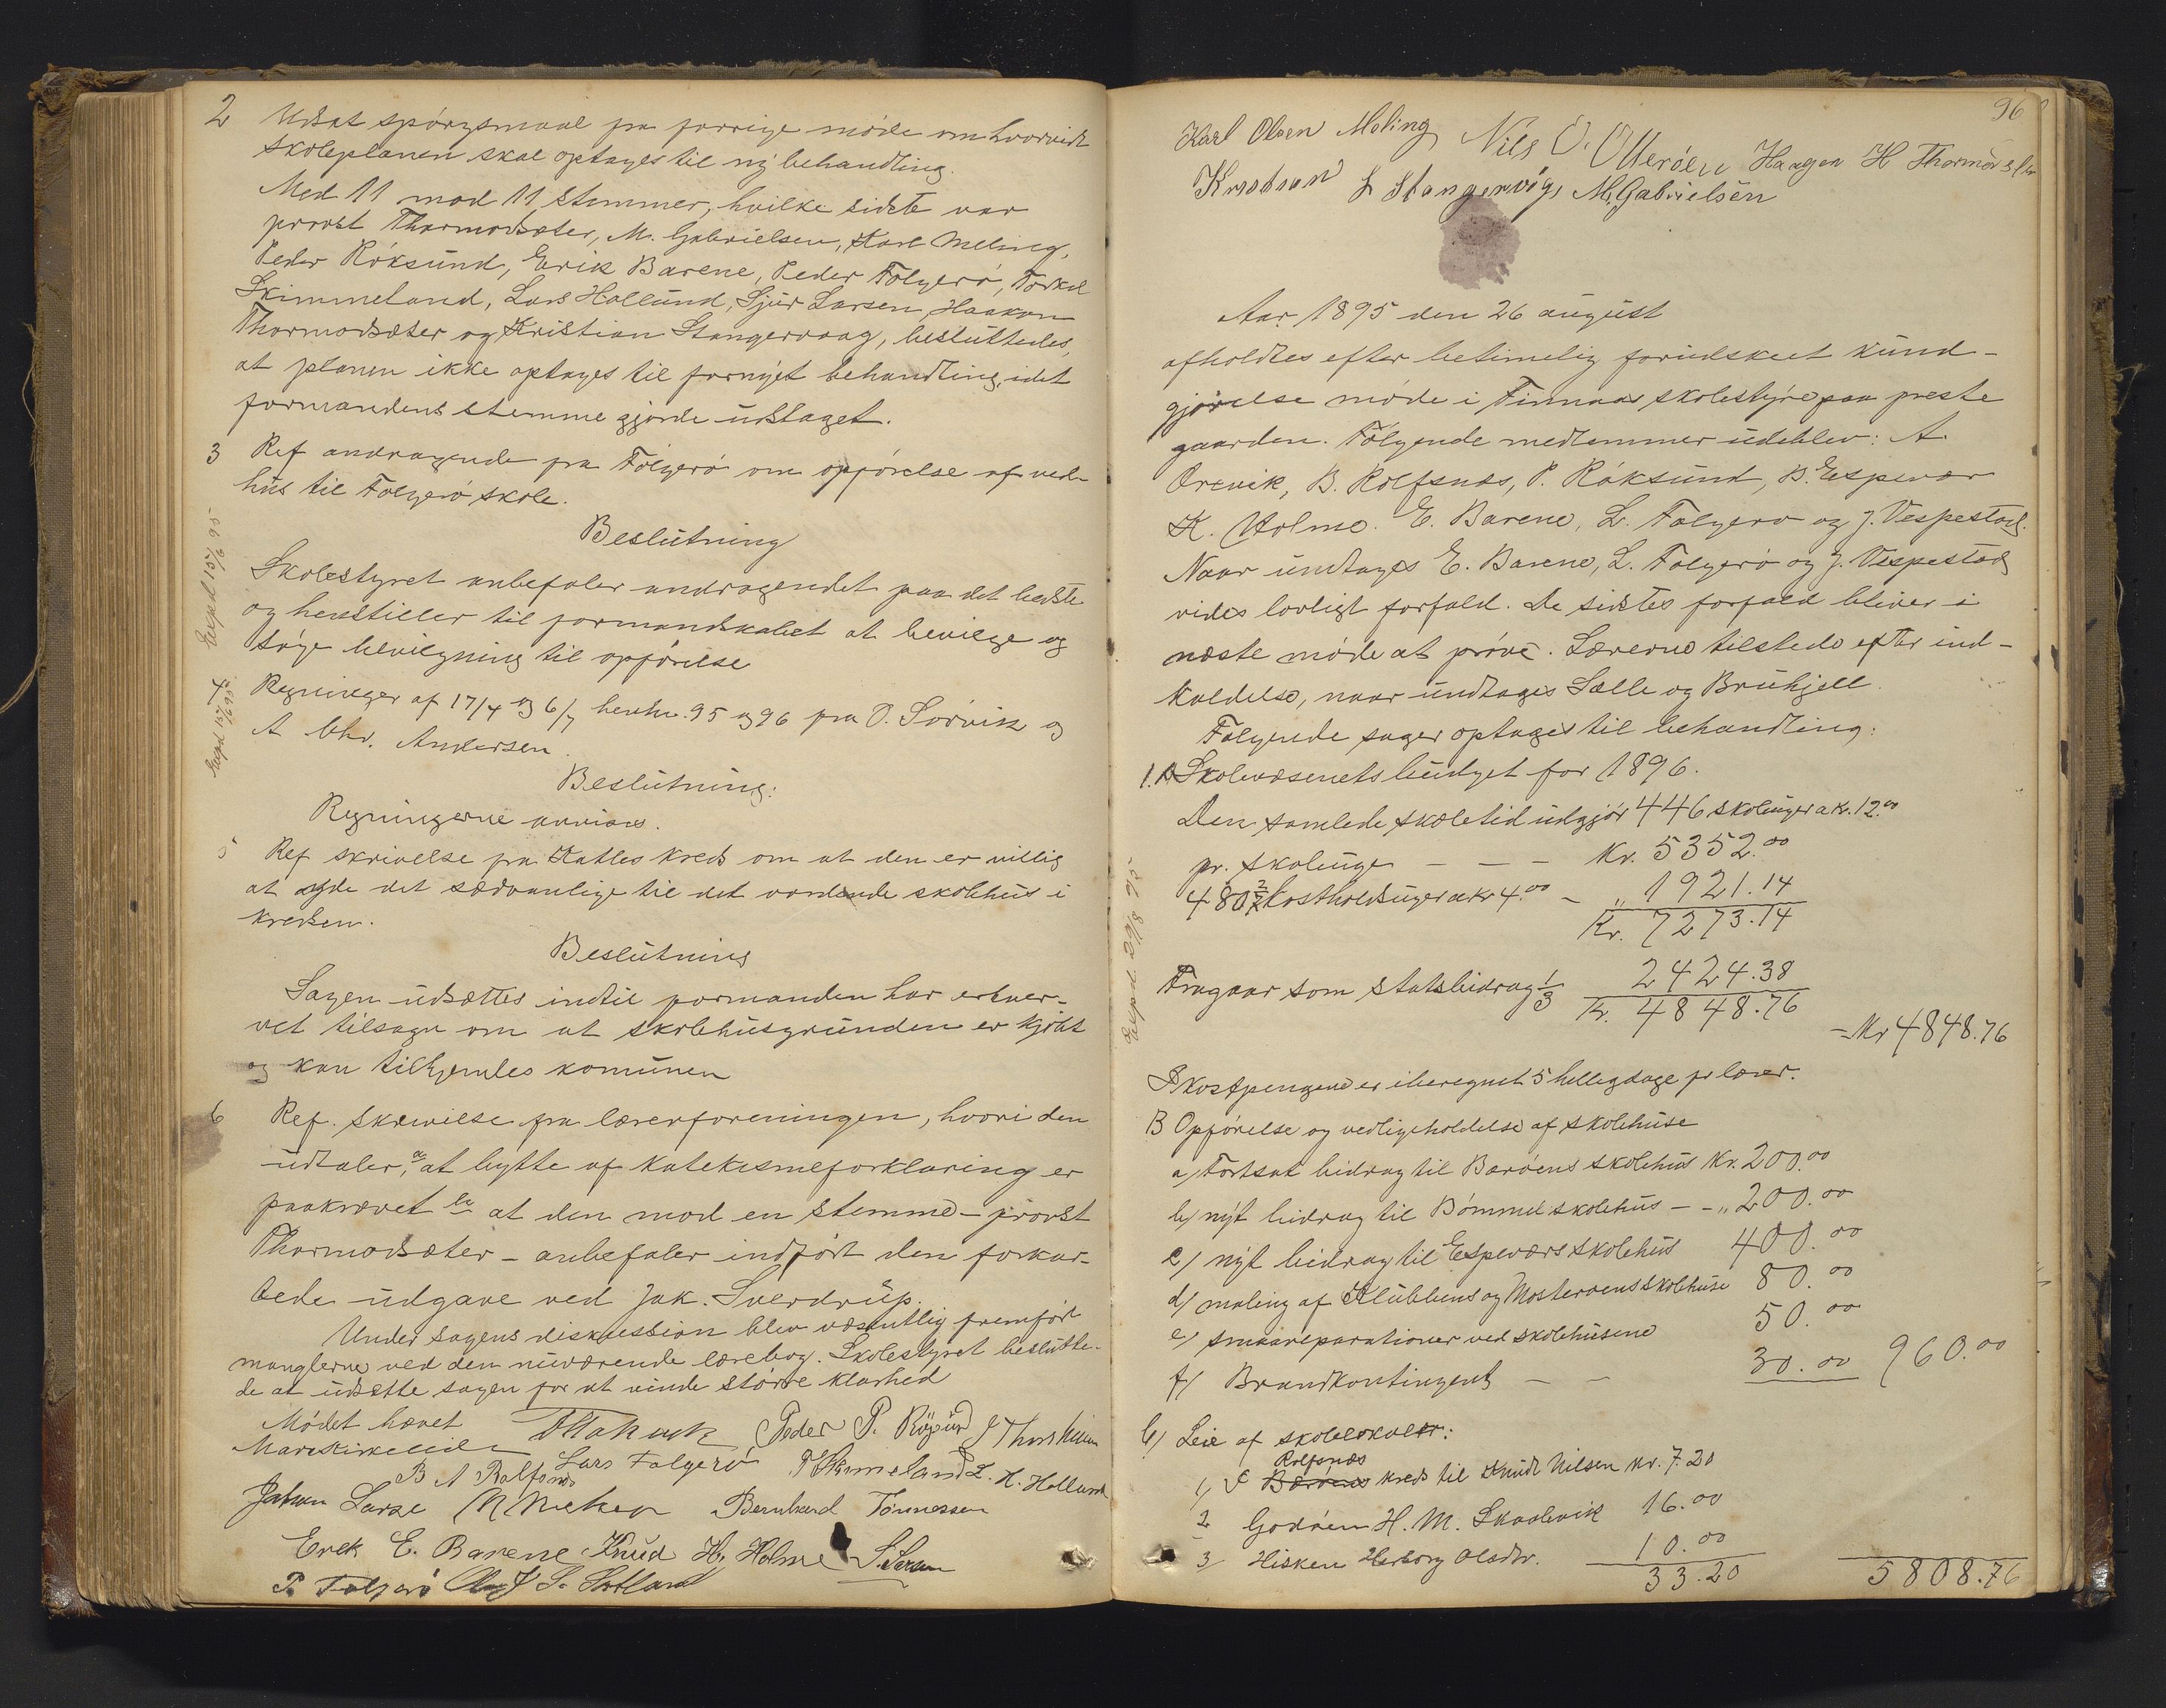 2 Udsat spórgsmaal fra forrige móde om hvorvidt
skoleplanen skal optages til ny behandling.
Med 11 mod 11 stemmer, hvilke sidste var
provst Thormodsæter, M. Gabrielsen, Karl Meling,
Peder Róksund, Erik Barene, Peder Fólgeró, Torkel
Skimmeland, Lars Hollund, Sjur Larsen, Haakon
Thormodsæter og Kristian Stangervaag, besluttedes,
at planen ikke optages til fornyet behandling, idet
formandens stemme gjorde udslaget.
3 Ref andragende fra Fólgeró om opfórelse af ved-
hus til Folgeró skole.
Beslutning
Exped 15/6 95
Skolestyret anbefaler andragendet paa det bedste
og henstiller til formandskabet at bevilge og
sóge bevilgning til opfórelse
4 Regninger af 17/4 og 6/7 henhv. 95 og 96 fra O. Sórvik og
A Chr. Andersen.
Exped 15/6 95
Beslutning:
Regningerne anvises.
5 Ref skrivelse fra Katles kreds om at den er villig
at yde det sædvanlige til det vordende skolehus i
kredsen.
Beslutning
Sagen udsættes indtil formanden har erhver-
vet tilsagn om at skolehusgrunden er kjóbt
og kan tilhjemles komunen
6 Ref. skrivelse fra lærerforeningen, hvori den
udtaler, a at bytte af katekismeforklaring er
paakrævet b at den mod en stemme - provst
Thormodsæter - anbefaler indfórt den forkor-
tede udgave ved Jak. Sverdrup.
Under sagens diskussion blev væsentlig fremfórt
manglerne ved den nuværende lærebog. Skolestyret beslutte-
de at udsætte sagen for at vinde stórre klarhed
Módet hævet Peder P. Rógsund
Lars Folgeró T Skimmeland L. H. Hollund
B A Rolfsnes
Bernhard Tónnessen
Erek E. Barene Knud H. Holme S. Larsen
P. Folgeró
96
Karl Olsen Meling Nils O. Otteróen Haagen H Thormodsæter
Knutson K Stangervóg M. Gabrielsen
Aar 1895 den 26 august
afholdtes efter betimelig forudskeet kund-
gjórelse móde i Finnaas skolestyre paa preste
gaarden. Fólgende medlemmer udeblev: A.
Orevik, B. Rolfsnes, P. Róksund, B. Espevær
K. Holme. E. Barene, L. Folgeró og J. Vespestad.
Naar undtages E. Barene, L. Folgeró og J. Vespestad
vides lovligt forfald. De sidstes forfald bliver i
næste móde at próve. Lærerne tilstede efter ind-
kaldelse, naar undtages Sælle og Bruhjell
Fólgende sager optages til behandling:
1. A Skolevæsenets budget for 1896.
Den samlede skoletid udgjór 446 skoleuger a kr. 12.00
pr. skoleuge - - - Kr. 5352.00
480 2/7 kostholdsuger a kr 4.00 - " 1921.14
Kr. 7273.14
Exped. 29/8 95
Fragaar som statsbidrag 1/3 2424.38
Kr. 4848.76
= Kr 4848.76
I kostpengene er iberegnet 5 helligdage pr lærer.
B Opfórelse og vedligeholdelse af skolehuse
a) Fortsat bidrag til Baróens skolehus Kr. 200.00
b) nyt bidrag til Bómmel skolehus - - " 200.00
c) nyt bidrag til Espeværs skolehus 400.00
d) maling af Klubbens og Mosterøens skolehuse 80.00
e) smaareparationer ved skolehusene 50.00
f) Brandkontingent - - 30.00 960.00
C) Leie af skolelokaler:
1) Rolfsnæs kreds til Knut Nilsen kr. 7.20
2 Godóen H. M. Skaalevik 16.00
3) Hisken Herborg Olsdtr. 10.00
33.20 5808.76